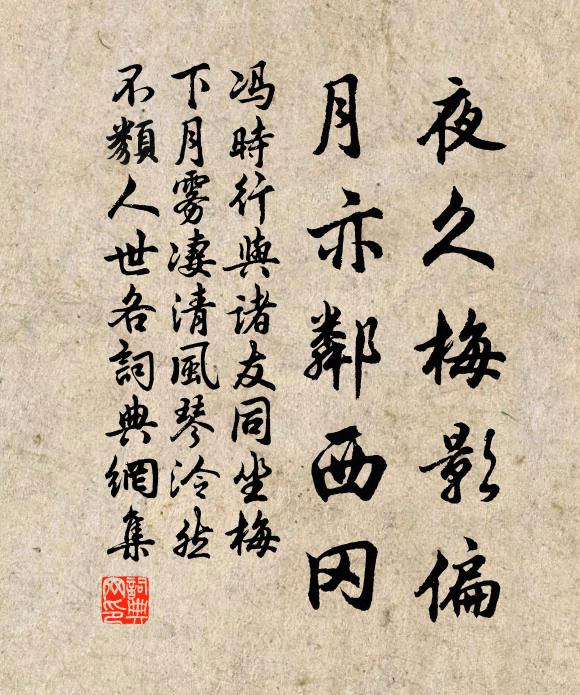 夜久梅影偏
月亦鄰西冈
冯時行與諸友同坐梅
下月雾凄清風琴泠然
不類人世各詞典網集
詞典
网印